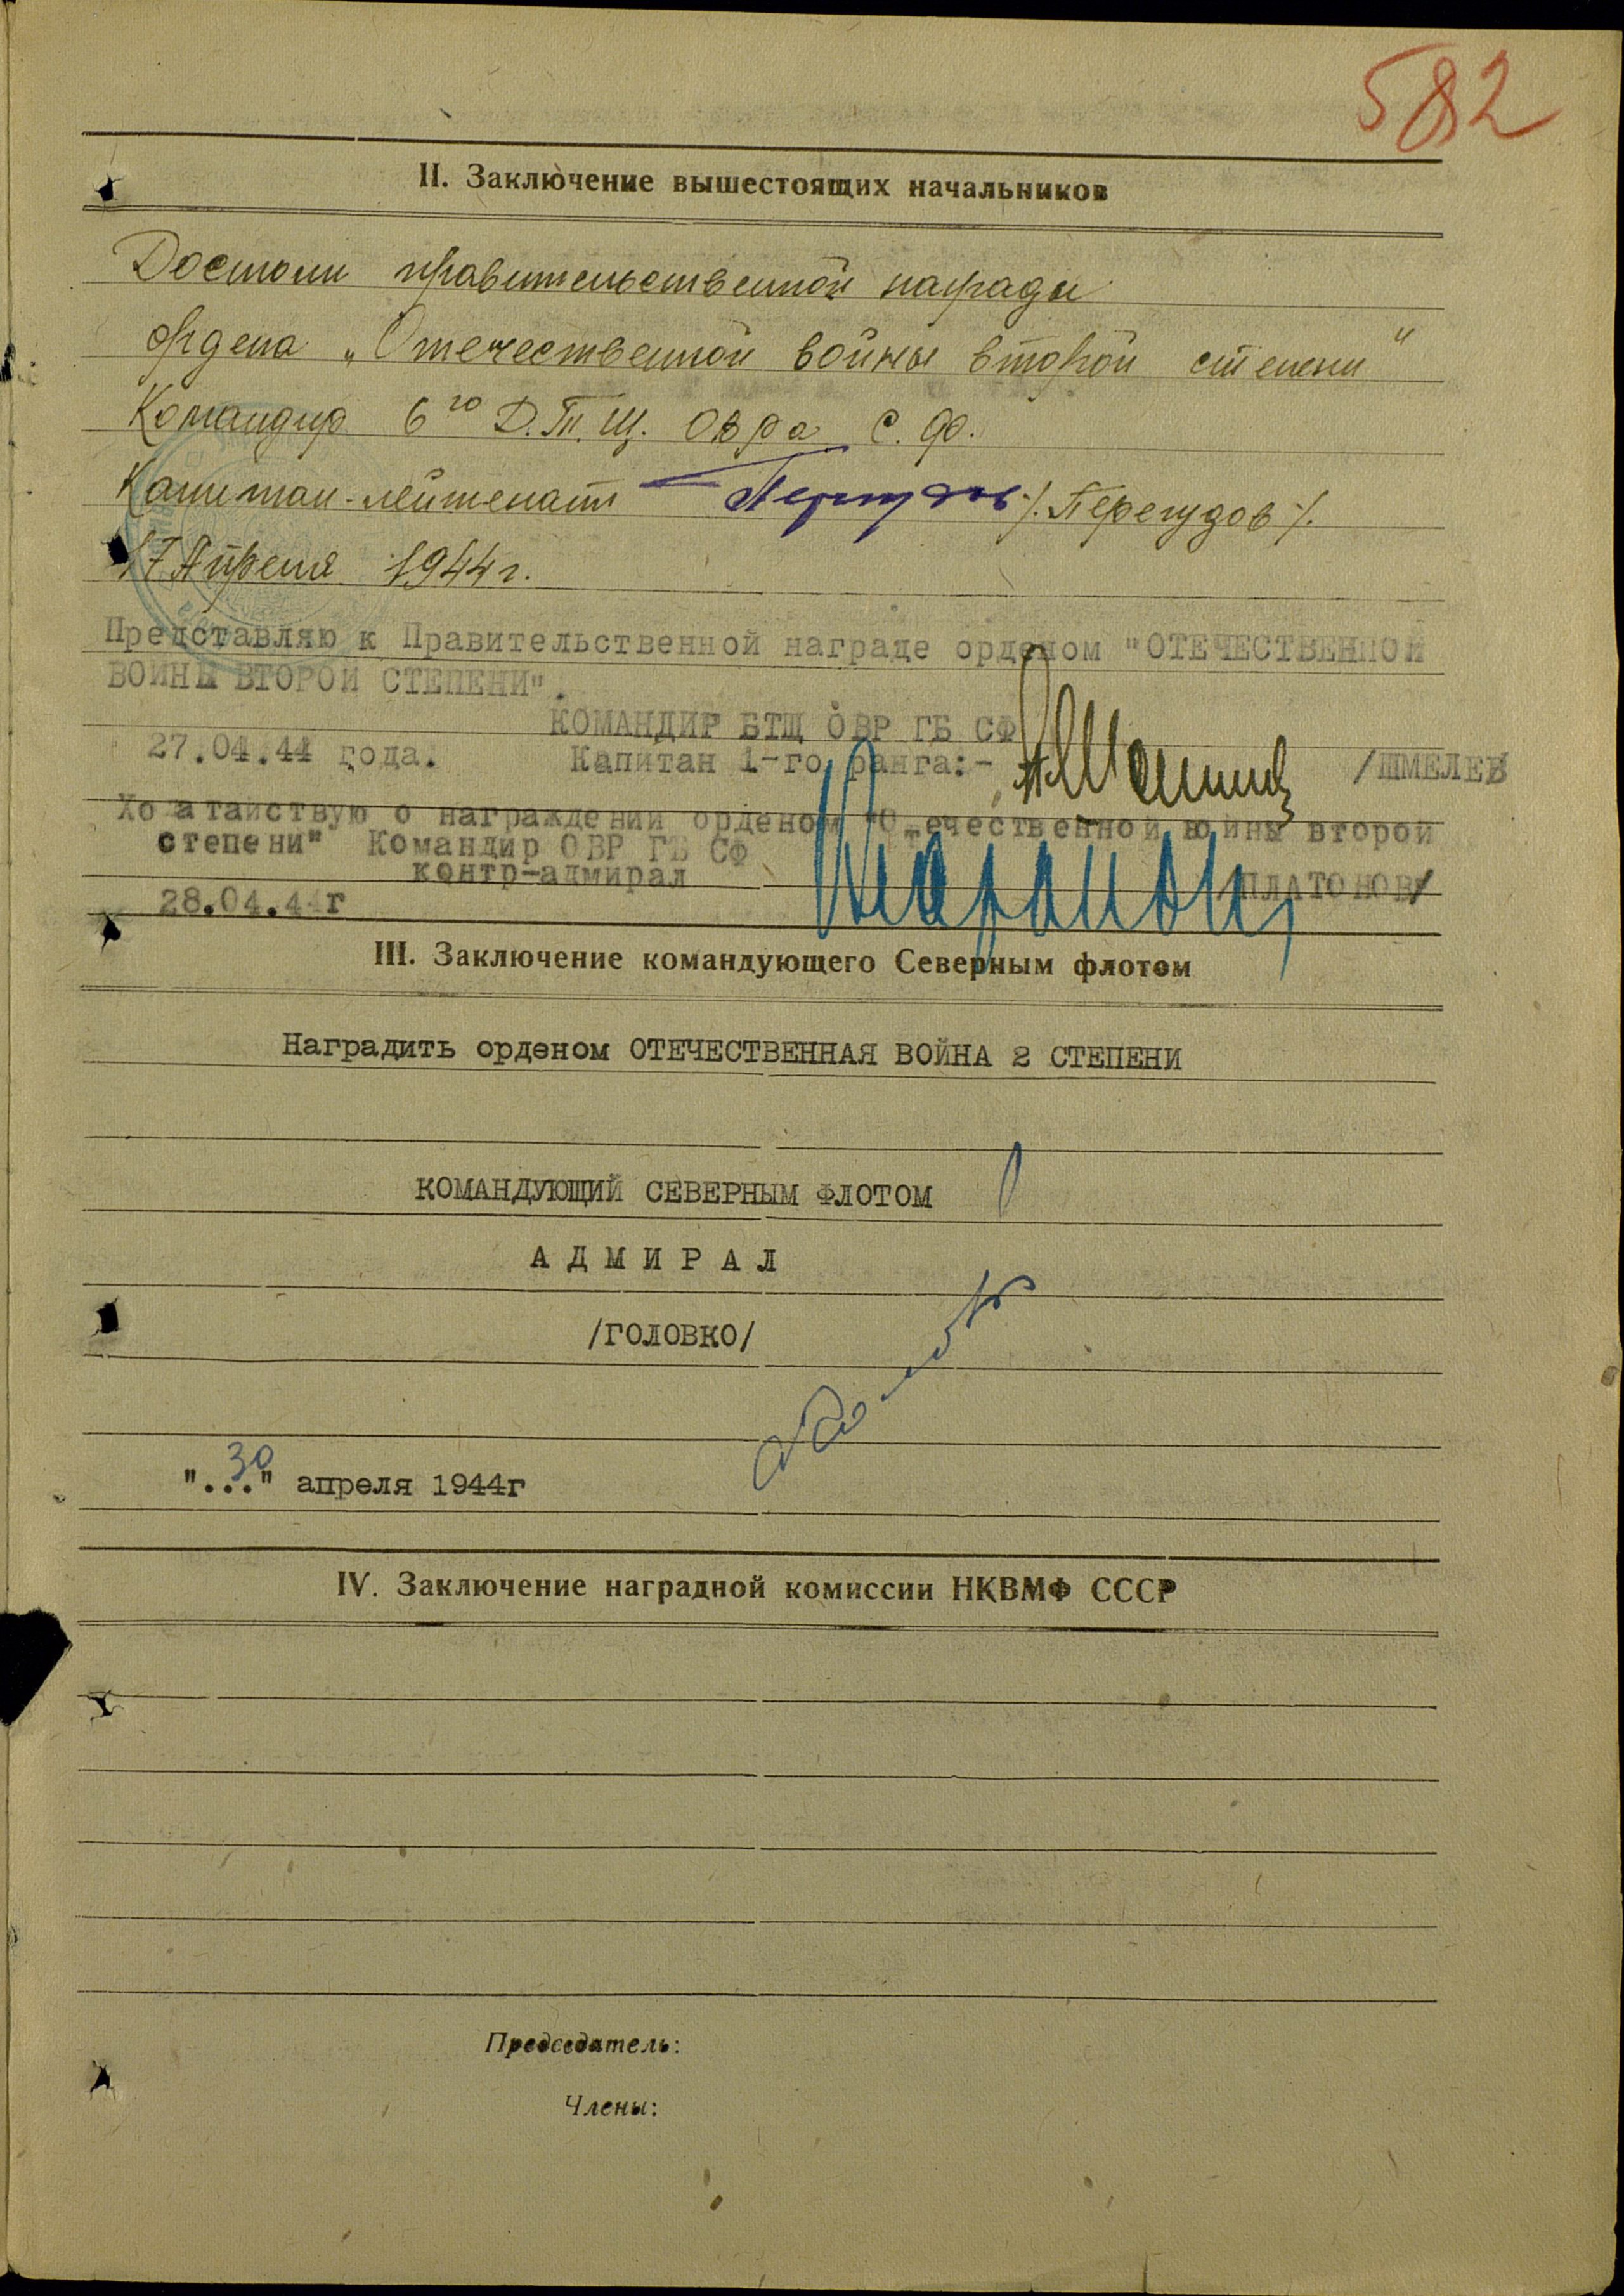 582
II. Заключение вышестоящих начальников
Достоин правительственной награды
ордена „Отечественной войны второй степени"
Командир 6го Д.Т.Щ. ОВРа С.Ф.
Капитан-лейтенант /.Перегудов/.
17 Апреля 1944г.
Представляю к Правительственной награде орденом "ОТЕЧЕСТВЕННОЙ
ВОИНЫ ВТОРОЙ СТЕПЕНИ".
КОМАНДИР БТЩ ОВР ГБ СФ
27.04.44 года. Капитан 1-го ранга:- /ШМЕЛЕВ
Хо атайствую о награждении орденом "Отечественной войны второй
степени" Командир ОВР ГБ СФ
контр-адмирал /ПЛАТОНОВ/
28.04.44г
III. Заключение командующего Северным флотом
Наградить орденом ОТЕЧЕСТВЕННАЯ ВОЙНА 2 СТЕПЕНИ
КОМАНДУЮЩИЙ СЕВЕРНЫМ ФЛОТОМ
А Д М И Р А Л
/ГОЛОВКО/
"...30" апреля 1944г
IV. Заключение наградной комиссии НКВМФ СССР
Председатель:
Члены: